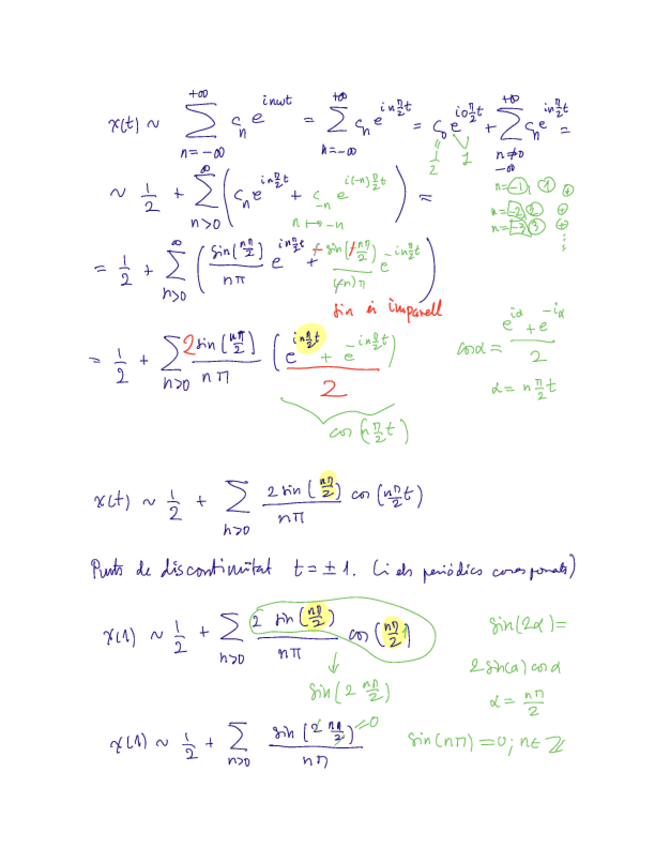 x(t) ~ ∑_{n=-∞}^{+∞} c_n e^{inωt} = ∑_{n=-∞}^{+∞} c_n e^{in π/2 t} = c_0 e^{i0 π/2 t} + ∑_{n≠0, -∞}^{+∞} c_n e^{in π/2 t} =
1/2 1
~ 1/2 + ∑_{n>0}^{∞} ( c_n e^{in π/2 t} + c_{-n} e^{i(-n) π/2 t} ) =
n ↦ -n
n = -1, 1 ⊕
n = -2, 2 ⊕
n = -3, 3 ⊕
= 1/2 + ∑_{n>0}^{∞} ( sin(nπ/2)/(nπ) e^{in π/2 t} + (- sin(-nπ/2))/((-n)π) e^{-in π/2 t} )
sin és imparell
= 1/2 + ∑_{n>0} 2 sin(nπ/2)/(nπ) ( e^{in π/2 t} + e^{-in π/2 t} )/2
cos(n π/2 t)
cos α = (e^{iα} + e^{-iα})/2
α = n π/2 t
x(t) ~ 1/2 + ∑_{n>0} 2 sin(nπ/2)/(nπ) cos(nπ/2 t)
Punts de discontinuitat t = ± 1. (i els periòdics corresponents)
x(1) ~ 1/2 + ∑_{n>0} 2 sin(nπ/2)/(nπ) cos(nπ/2 1)
↓
sin(2 nπ/2)
sin(2α) =
2 sin(α) cos α
α = nπ/2
x(1) ~ 1/2 + ∑_{n>0} sin(2 nπ/2)/(nπ) = 0
sin(nπ) = 0; n ∈ ℤ